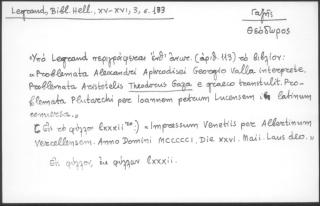 Legrand, Bibl. Hell., XV-XVI, 3, σ. 183
Γαζῆς
Θεόδωρος
Ὑπὸ Legrand περιγράφεται ὑπ' ἀριθ. (ἀριθ. 113) τὸ βιβλίον:
«Problemata Alexandri Aphrodisei Georgio Valla interprete.
Problemata Aristotelis Theodorus Gaza e graeco transtulit. Pro-
blemata Plutarchi per Ioannem petrum Lucensem in latinum
conversa.»
[Εἰς τὸ φύλλον lxxxii :) «Impressum Venetiis per Albertinum
Vercellensem. Anno Domini MCCCCCI. Die XXVI. Maii. Laus deo.»
Εἰς φύλλον, ἐκ φύλλων lxxxii.